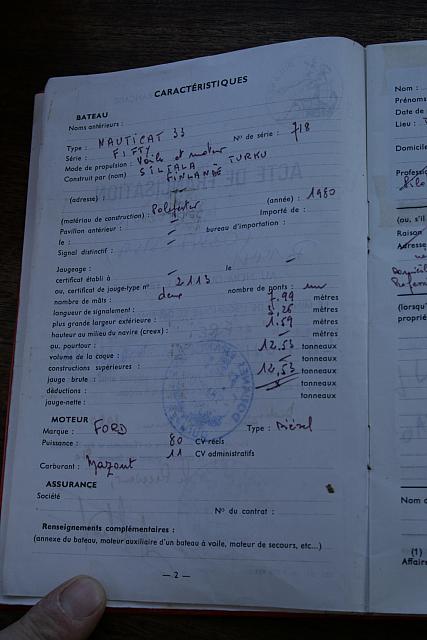 CARACTÉRISTIQUES
BATEAU
Noms antérieurs :
Type : NAUTICAT 33 N° de série : 718
Série : FIFTY
Mode de propulsion : Voile et moteur
Construit par (nom) SILTALA à TURKU
FINLANDE
(adresse) :
(matériau de construction) : Polyester (année) : 1980
Pavillon antérieur : Importé de :
le : bureau d'importation :
Signal distinctif :
Jaugeage : le
certificat établi à
ou, certificat de jauge-type n° 2113
nombre de mâts : deux nombre de ponts : un
longueur de signalement : 7,99 mètres
plus grande largeur extérieure : 3,26 mètres
hauteur au milieu du navire (creux) : 1.59 mètres
ou, pourtour : mètres
volume de la coque : 12,53 tonneaux
constructions supérieures : tonneaux
jauge brute : 12,53 tonneaux
déductions : tonneaux
jauge-nette : tonneaux
MOTEUR
Marque : FORD Type : Diésel
Puissance : 80 CV réels
11 CV administratifs
Carburant : Mazout
ASSURANCE
Société
N° du contrat :
Renseignements complémentaires :
(annexe du bateau, moteur auxiliaire d'un bateau à voile, moteur de secours, etc...)
— 2 —
Nom :
Prénoms
Date de
Lieu :
Domicile
Profess
(ou, s'il
Raison
Adresse
(lorsqu'
proprié
Nom d
(1)
Affaire